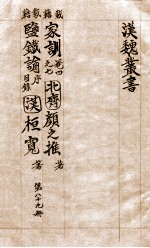 漢魏叢書
載籍
家訓 卷四之七 北齊 顏之推 著
載籍
鹽鐵論 序目錄 漢 桓寬 著
第八十九册